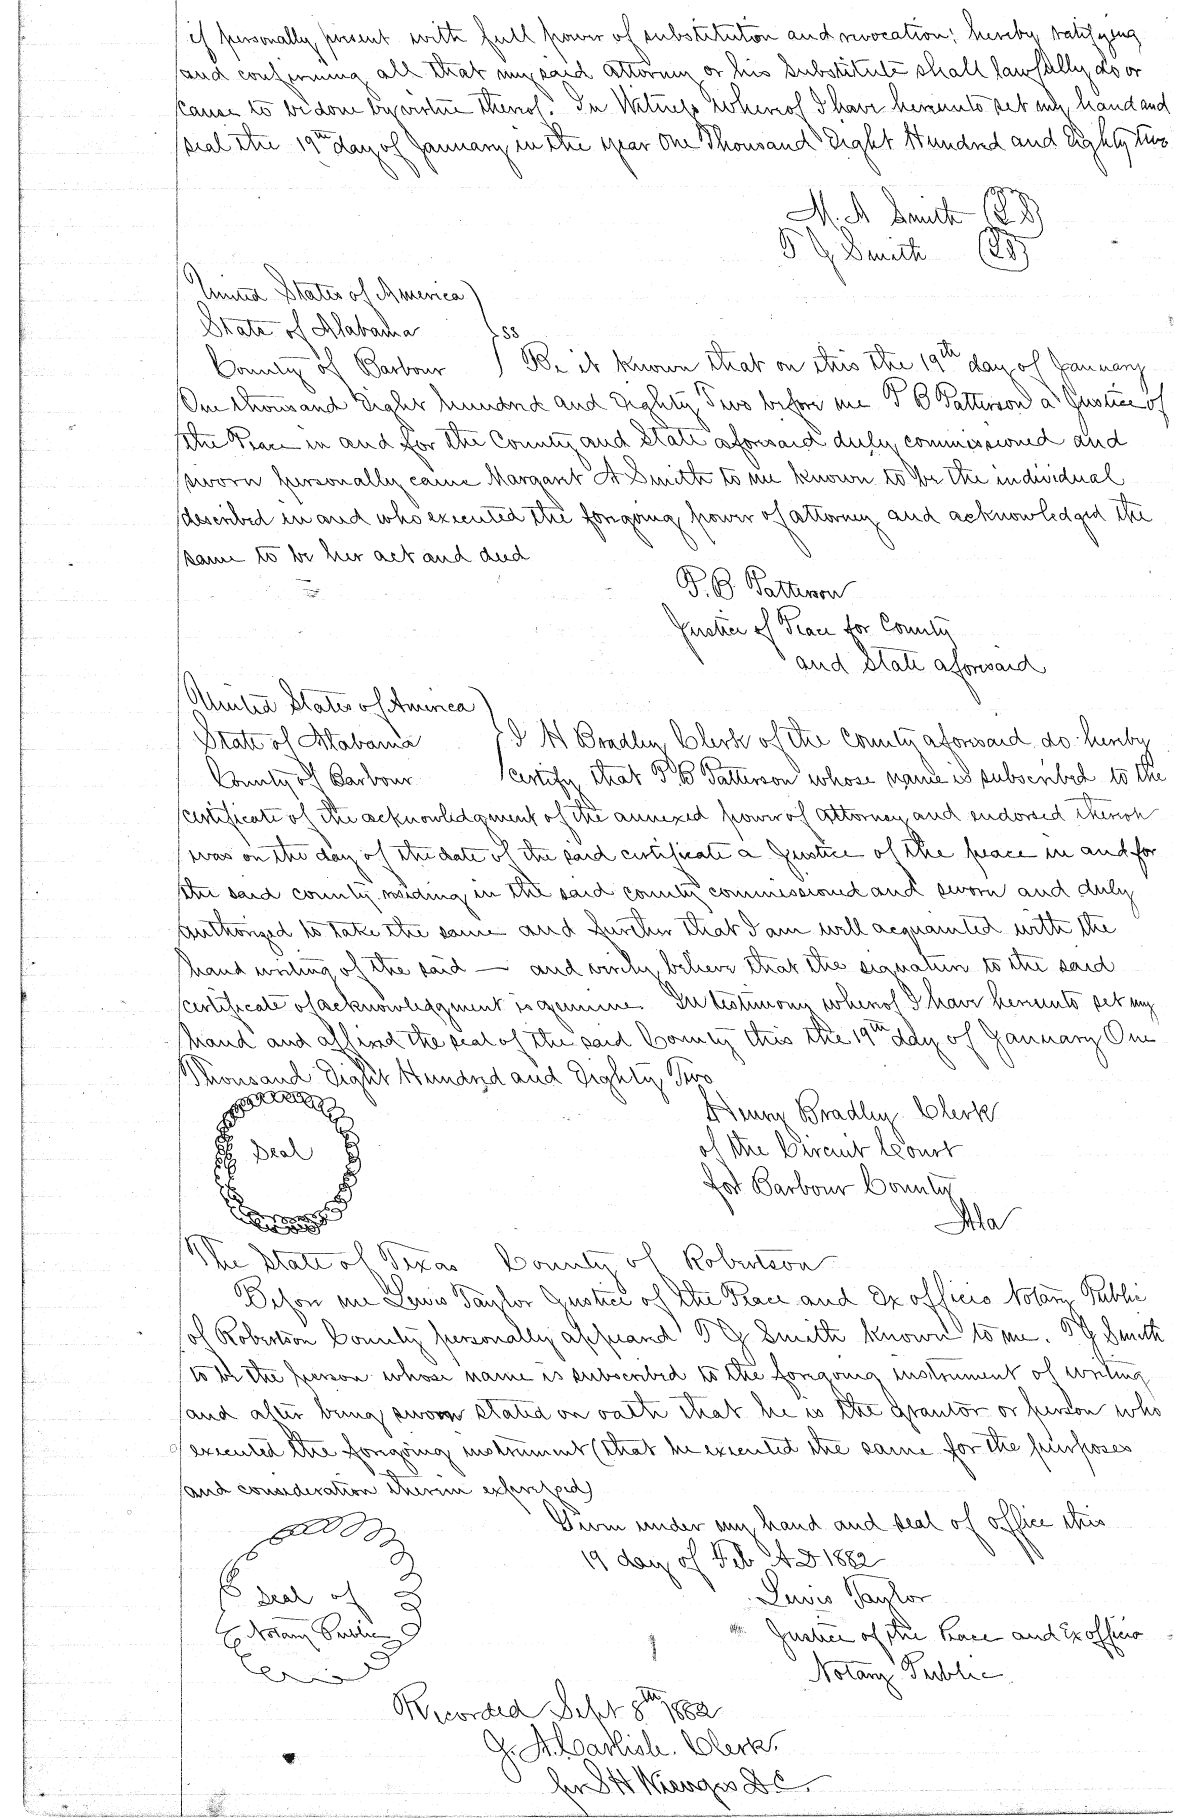 if personally present with full power of substitution and revocation; hereby ratifying
and confirming all that my said attorney or his Substitute shall lawfully do or
cause to be done by virtue thereof. In Witness Whereof I have hereunto set my hand and
seal the 19th day of January in the year One Thousand Eight Hundred and Eighty two
M. A Smith (LS)
T G Smith (LS)
United States of America )
State of Alabama } SS
County of Barbour ) Be it known that on this the 19th day of January
One thousand Eight hundred and Eighty Two before me P B Patterson a Justice of
the Peace in and for the County and State aforesaid duly commissioned and
sworn personally came Margaret A Smith to me known to be the individual
described in and who executed the foregoing power of attorney and acknowledged the
same to be her act and deed
P. B. Patterson
Justice of Peace for County
and State aforesaid
United States of America )
State of Alabama } I H Bradley Clerk of the County aforesaid do hereby
County of Barbour ) certify that P. B Patterson whose name is subscribed to the
certificate of the acknowledgment of the annexed power of Attorney and endorsed thereon
was on the day of the date of the said certificate a Justice of the peace in and for
the said county residing in the said county commissioned and sworn and duly
authorized to take the same and further that I am well acquainted with the
hand writing of the said — and verily believe that the signature to the said
certificate of acknowledgment is genuine. In testimony whereof I have hereunto set my
hand and affixed the seal of the said County this the 19th day of January One
Thousand Eight Hundred and Eighty Two
Henry Bradley Clerk
Seal
of the Circuit Court
for Barbour County
Ala
The State of Texas County of Robertson
Before me Lewis Taylor Justice of the Peace and Ex officio Notary Public
of Robertson County personally appeared T G Smith known to me. T G Smith
to be the person whose name is subscribed to the foregoing instrument of writing
and after being sworn stated on oath that he is the grantor or person who
executed the foregoing instrument (that he executed the same for the purposes
and consideration therein expressed)
Given under my hand and seal of office this
19 day of Feb A D 1882
Seal of
Notary Public
Lewis Taylor
Justice of the Peace and Ex officio
Notary Public
Recorded Sept 8th 1882
G. A. Carlisle. Clerk.
per S H D.C.